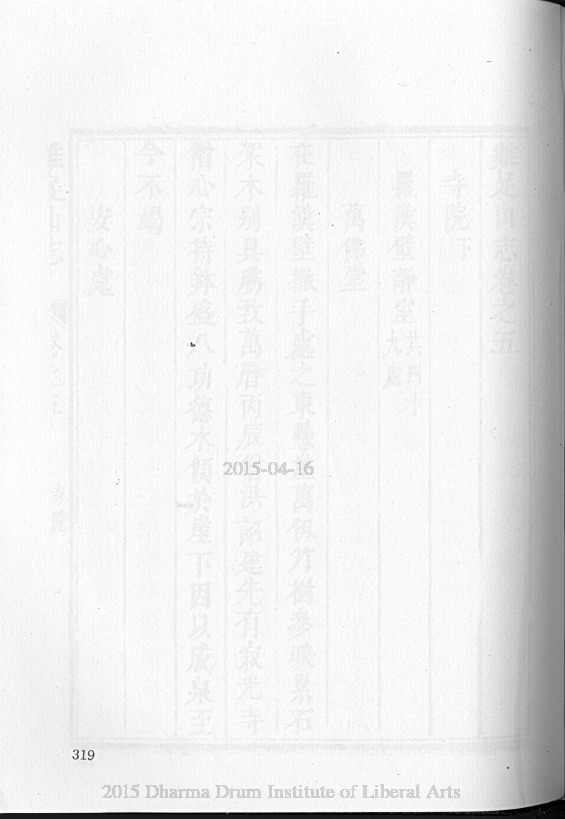 雞足山志卷之五
寺院下
羅漢壁靜室共四十
九處
萬佛堂
在羅漢壁撒手處之東懸崖萬仞竹樹參映累石
架木別具勝致萬曆丙辰僧洪詔建先有寂光寺
僧心宗持鉢盛八功德水傾於崖下因以成泉至
今不竭
安心處
雞足山志 卷之五
2015-04-16
319
2015 Dharma Drum Institute of Liberal Arts